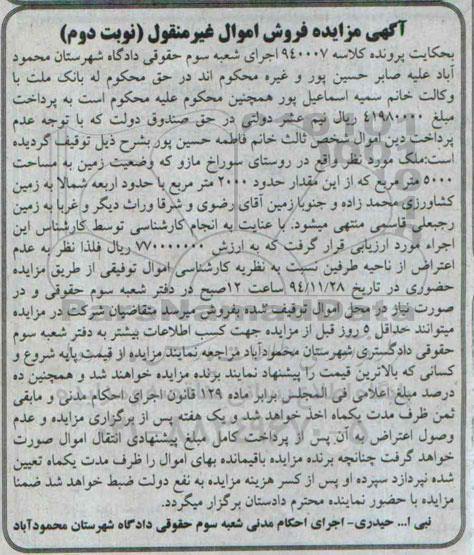 آگهی مزایده فروش اموال غیرمنقول (نوبت دوم)
بحکایت پرونده کلاسه ۹۴۰۰۰۷ اجرای شعبه سوم حقوقی دادگاه شهرستان محمود
آباد علیه صابر حسین پور و غیره محکوم اند در حق محکوم له بانک ملت با
وکالت خانم سمیه اسماعیل پور همچنین محکوم علیه محکوم است به پرداخت
مبلغ ۴۱۹۸۰۰۰۰ ریال نیم عشر دولتی در حق صندوق دولت که با توجه عدم
پرداخت دین اموال شخص ثالث خانم فاطمه حسین پور بشرح ذیل توقیف گردیده
است:ملک مورد نظر واقع در روستای سوراخ مازو که وضعیت زمین به مساحت
۵۰۰۰ متر مربع که از این مقدار حدود ۲۰۰۰ متر مربع با حدود اربعه شمالا به زمین
کشاورزی محمد زاده و جنوبا زمین آقای رضوی و شرقا وراث دیگر و غربا به زمین
رجبعلی قاسمی منتهی میشود. با عنایت به انجام کارشناسی توسط کارشناس این
اجراء مورد ارزیابی قرار گرفت که به ارزش ۷۷۰۰۰۰۰۰۰ ریال فلذا نظر به عدم
اعتراض از ناحیه طرفین نسبت به نظریه کارشناسی اموال توقیفی از طریق مزایده
حضوری در تاریخ ۹۴/۱۱/۲۸ ساعت ۱۲صبح در دفتر شعبه سوم حقوقی و در
صورت نیاز در محل اموال توقیف شده بفروش میرسد متقاضیان شرکت در مزایده
میتوانند حداقل ۵ روز قبل از مزایده جهت کسب اطلاعات بیشتر به دفتر شعبه سوم
حقوقی دادگستری شهرستان محمودآباد مراجعه نمایند مزایده از قیمت پایه شروع و
کسانی که بالاترین قیمت را پیشنهاد نمایند برنده مزایده خواهند شد و همچنین ده
درصد مبلغ اعلامی فی المجلس برابر ماده ۱۲۹ قانون اجرای احکام مدنی و مابقی
ثمن ظرف مدت یکماه اخذ خواهد شد و یک هفته پس از برگزاری مزایده و عدم
وصول اعتراض به آن پس از پرداخت کامل مبلغ پیشنهادی انتقال اموال صورت
خواهد گرفت چنانچه برنده مزایده باقیمانده بهای اموال را ظرف مدت یکماه تعیین
شده نپردازد سپرده او پس از کسر هزینه مزایده به نفع دولت ضبط خواهد شد ضمنا
مزایده با حضور نماینده محترم دادستان برگزار میگردد.
نبی ا... حیدری- اجرای احکام مدنی شعبه سوم حقوقی دادگاه شهرستان محمودآباد